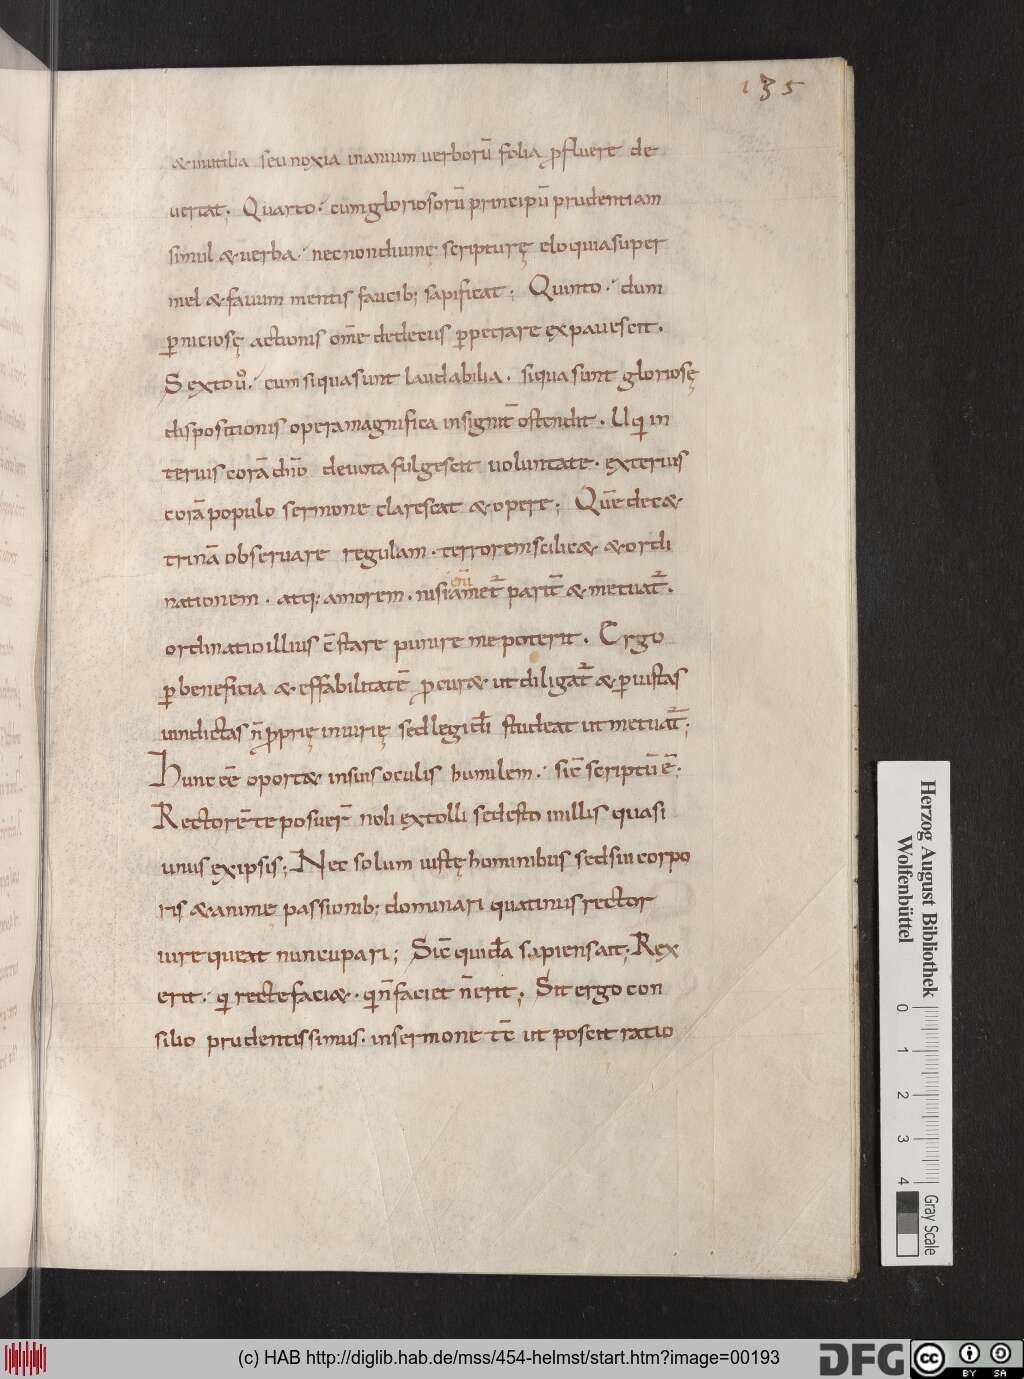 135
& inutilia seu noxia inanium verborū folia ꝓfluere de
vertat; Quarto· cum gloriosorū principū prudentiam
simul & verba· necnon diuinę scripturę eloquia super
mel & fauum mentis faucib; sapificat; Quinto· dum
ꝑniciosę actionis om̅e dedecus ꝑpetrare expauescit.
Sexto ůo· cum siqua sunt laudabilia· siqua sunt gloriosę
dispositionis opera magnifica insignit̅ ostendit· Ut qui in
ternis corā dn̅o deuota fulgescit uoluntate· externis
corā populo sermone clarescat & opere; Quē dec&
trinā obseruare regulam· terrorem scilic& & ordi
nationem· atq; amorem· nisi eni̅ amet̅ parit̅ & metuat̅·
ordinatio illius c̅stare pinire me poterit· Ergo
ꝑ beneficia & effabilitatē ꝓcur& ut diligat̅ & ꝑ iustas
uindictas n̅ ꝓprię iniurię sed legi di̅ studeat ut metuat̅;
Hunc ēē oport& insuis oculis humilem· sic̅ scriptū ē;
Rectorē te posuer̅ noli extolli sed esto inillis quasi
unus ex ipsis; Nec solum iustę hominibus sed sui corpo
ris & animę passionib; dominari quatinus rector
iure queat nuncupari; Sic̅ quida̅ sapiens ait· Rex
erit· qui recte faci&· qui n̅ faciet n̅ erit; Sit ergo con
silio prudentissimus· insermone t̅e ut poscit ratio
Herzog August Bibliothek
Wolfenbüttel
0 1 2 3 4
Gray Scale
(c) HAB http://diglib.hab.de/mss/454-helmst/start.htm?image=00193
DFG
cc BY SA